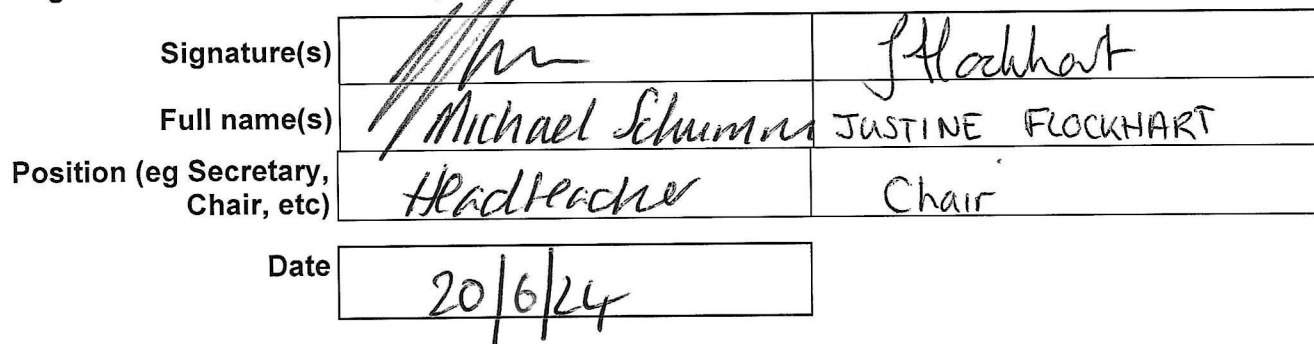 Signature(s) JFlockhart
Full name(s) Michael Schumm JUSTINE FLOCKHART
Position (eg Secretary, Headteacher Chair
Chair, etc)
Date 20/6/24